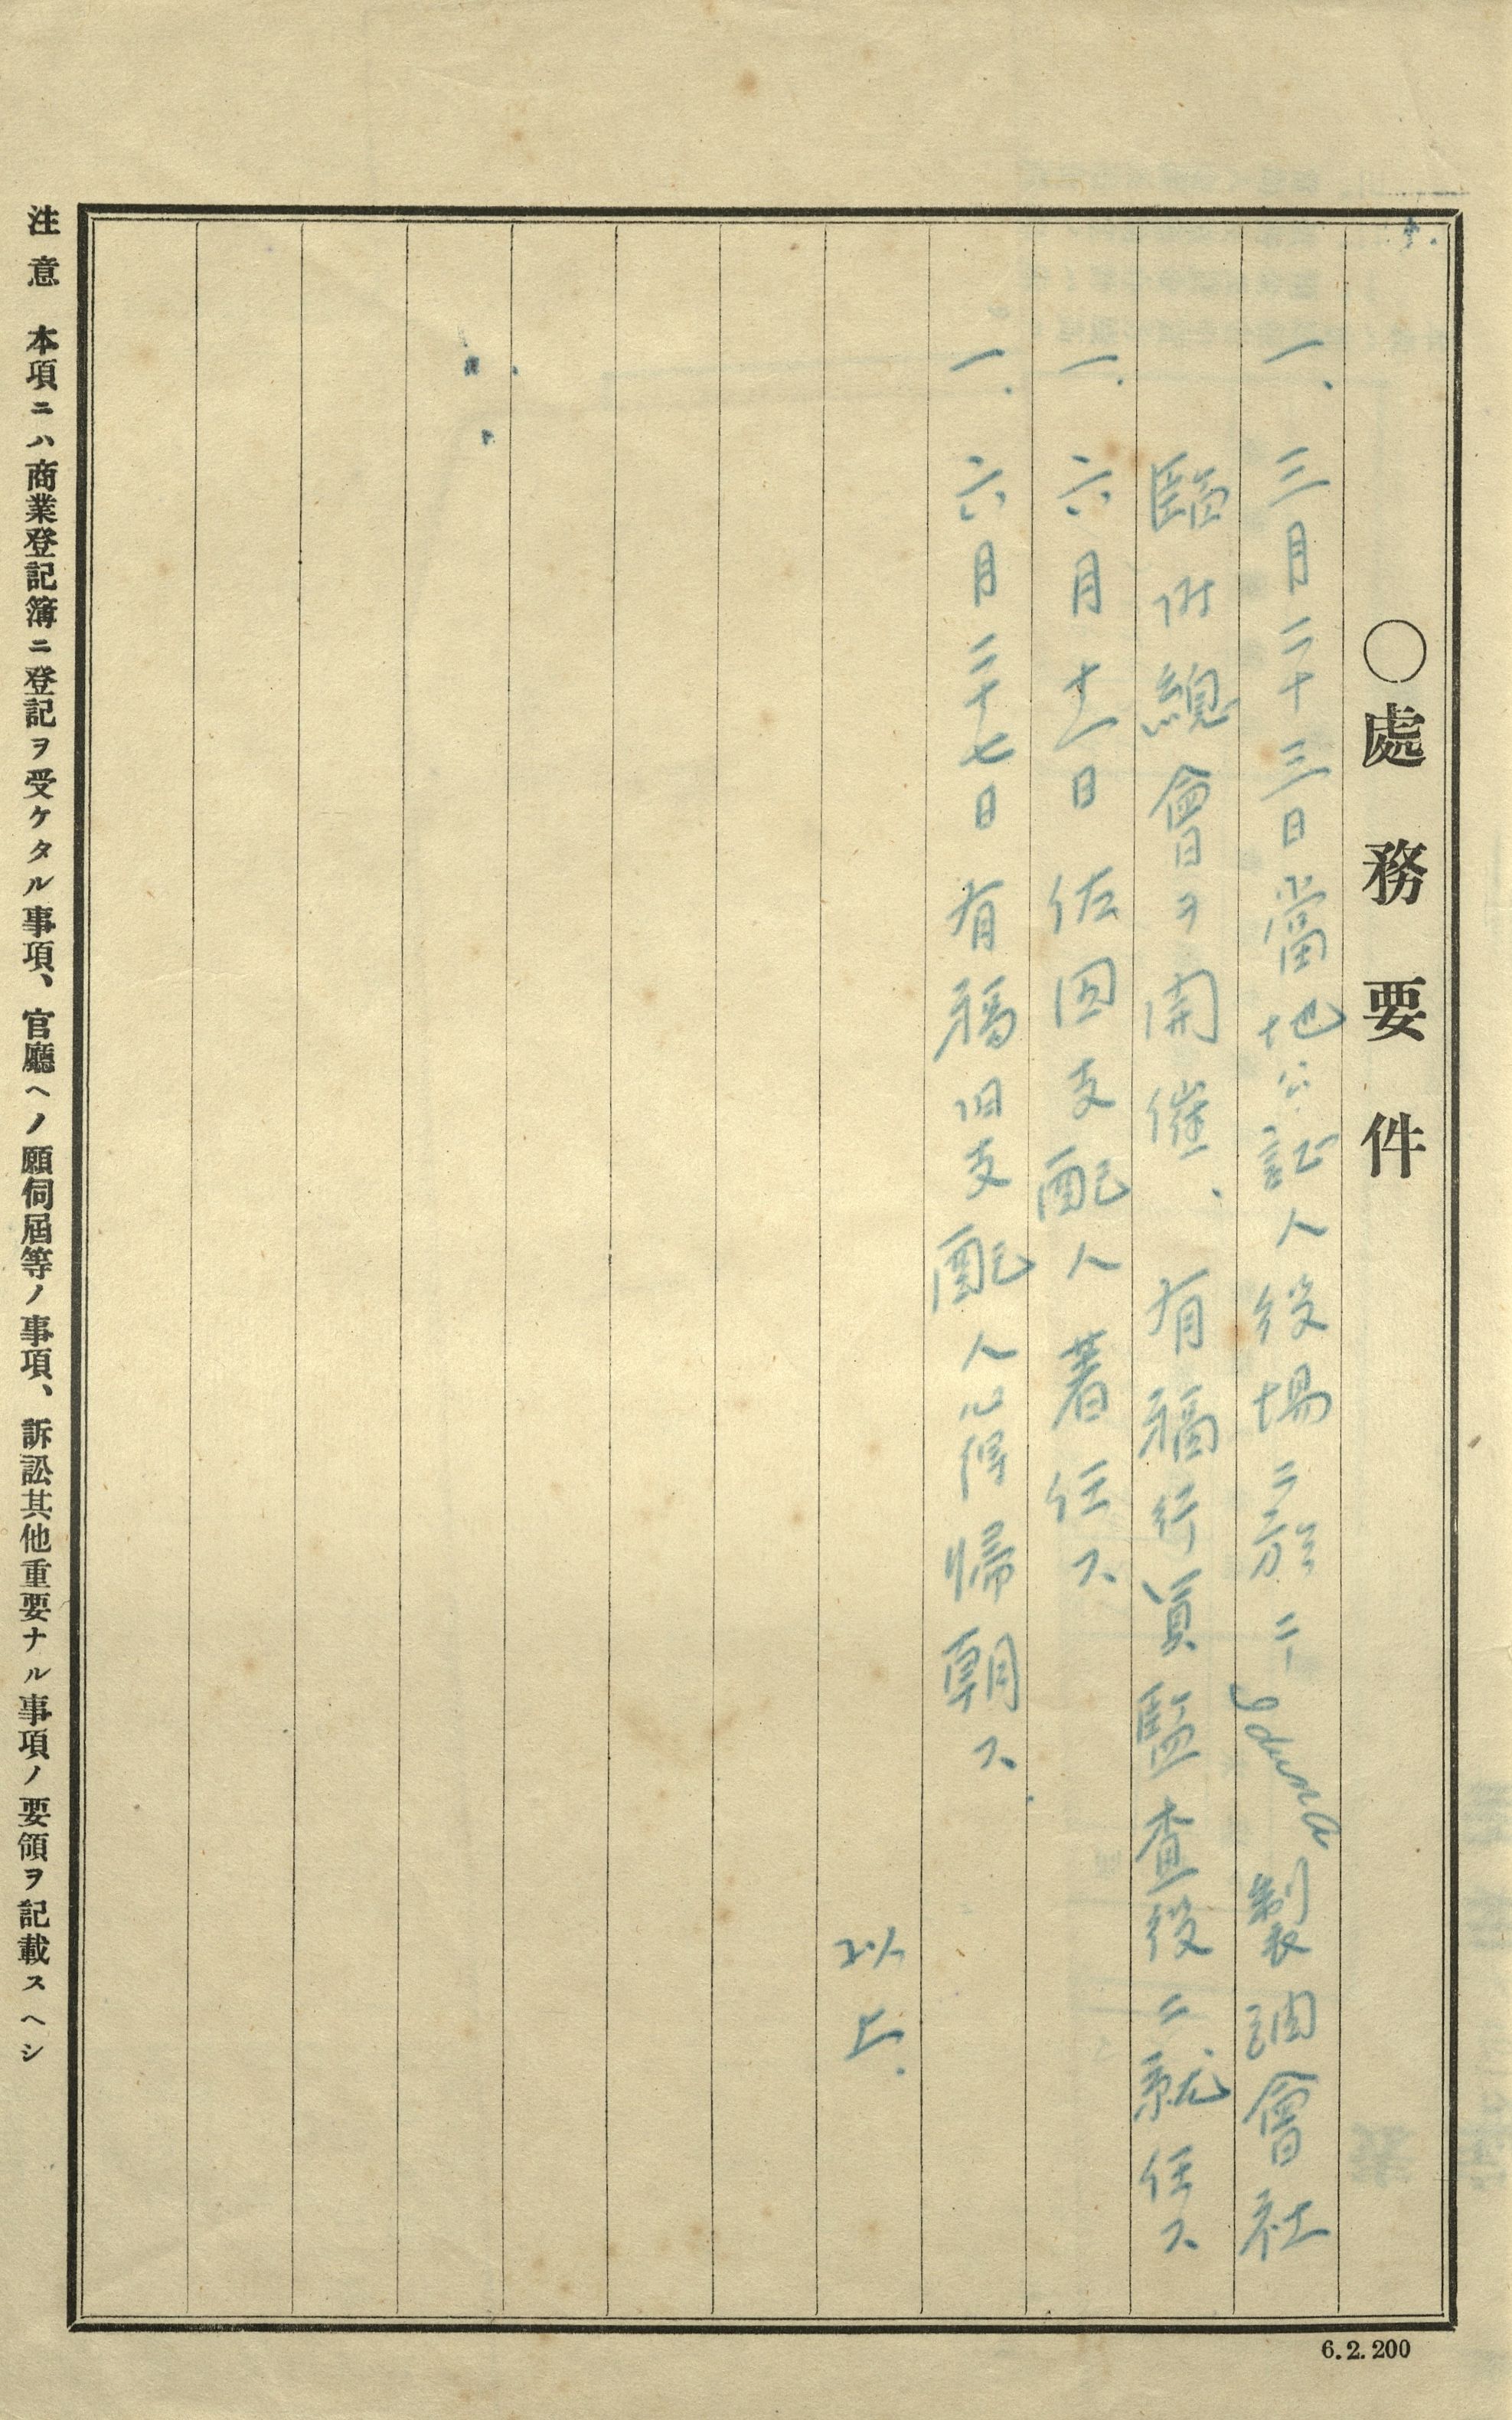 ○處務要件
一、三月二十三日當地公証人役場ニ於テ Iduna 製油會社
臨時總會ヲ開催、有福行員監査役ニ就任ス
一、六月十一日 佐田支配人着任ス
一、六月二十七日 有福旧支配人心得帰朝ス.
以上.
注意 本項ニハ商業登記簿ニ登記ヲ受ケタル事項、官廳ヘノ願伺屆等ノ事項、訴訟其他重要ナル事項ノ要領ヲ記載スヘシ
6.2.200